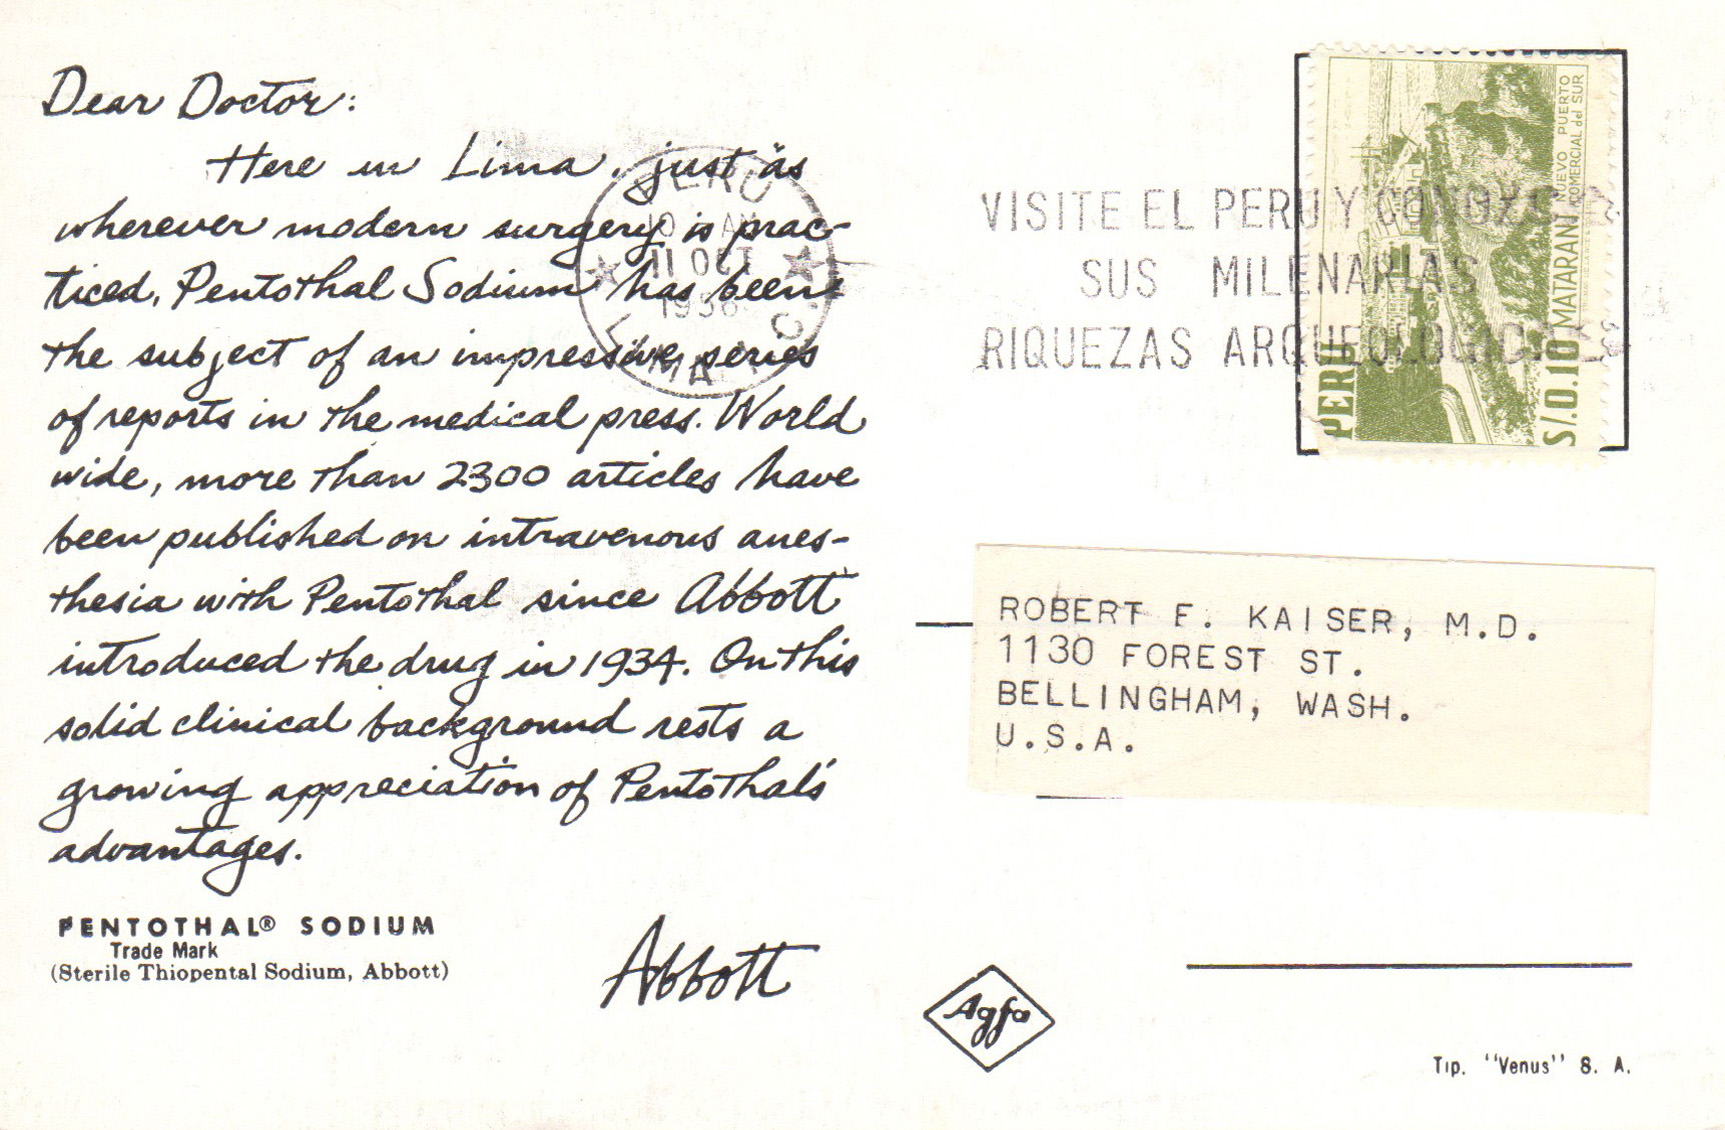 Dear Doctor:
Here in Lima, just as
wherever modern surgery is prac-
ticed, Pentothal Sodium has been
the subject of an impressive series
of reports in the medical press. World
wide, more than 2300 articles have
been published on intravenous anes-
thesia with Pentothal since Abbott
introduced the drug in 1934. On this
solid clinical background rests a
growing appreciation of Pentothal's
advantages.
PENTOTHAL® SODIUM
Trade Mark
(Sterile Thiopental Sodium, Abbott)
Abbott
PERU
10 AM
11 OCT
1956
LIMA
VISITE EL PERU Y CONOZCA
SUS MILENARIAS
RIQUEZAS ARQUEOLOGICAS
PERU
S/.0.10 MATARANI NUEVO PUERTO
COMERCIAL del SUR
ROBERT F. KAISER, M.D.
1130 FOREST ST.
BELLINGHAM, WASH.
U.S.A.
Agfa
Tip. "Venus" S. A.